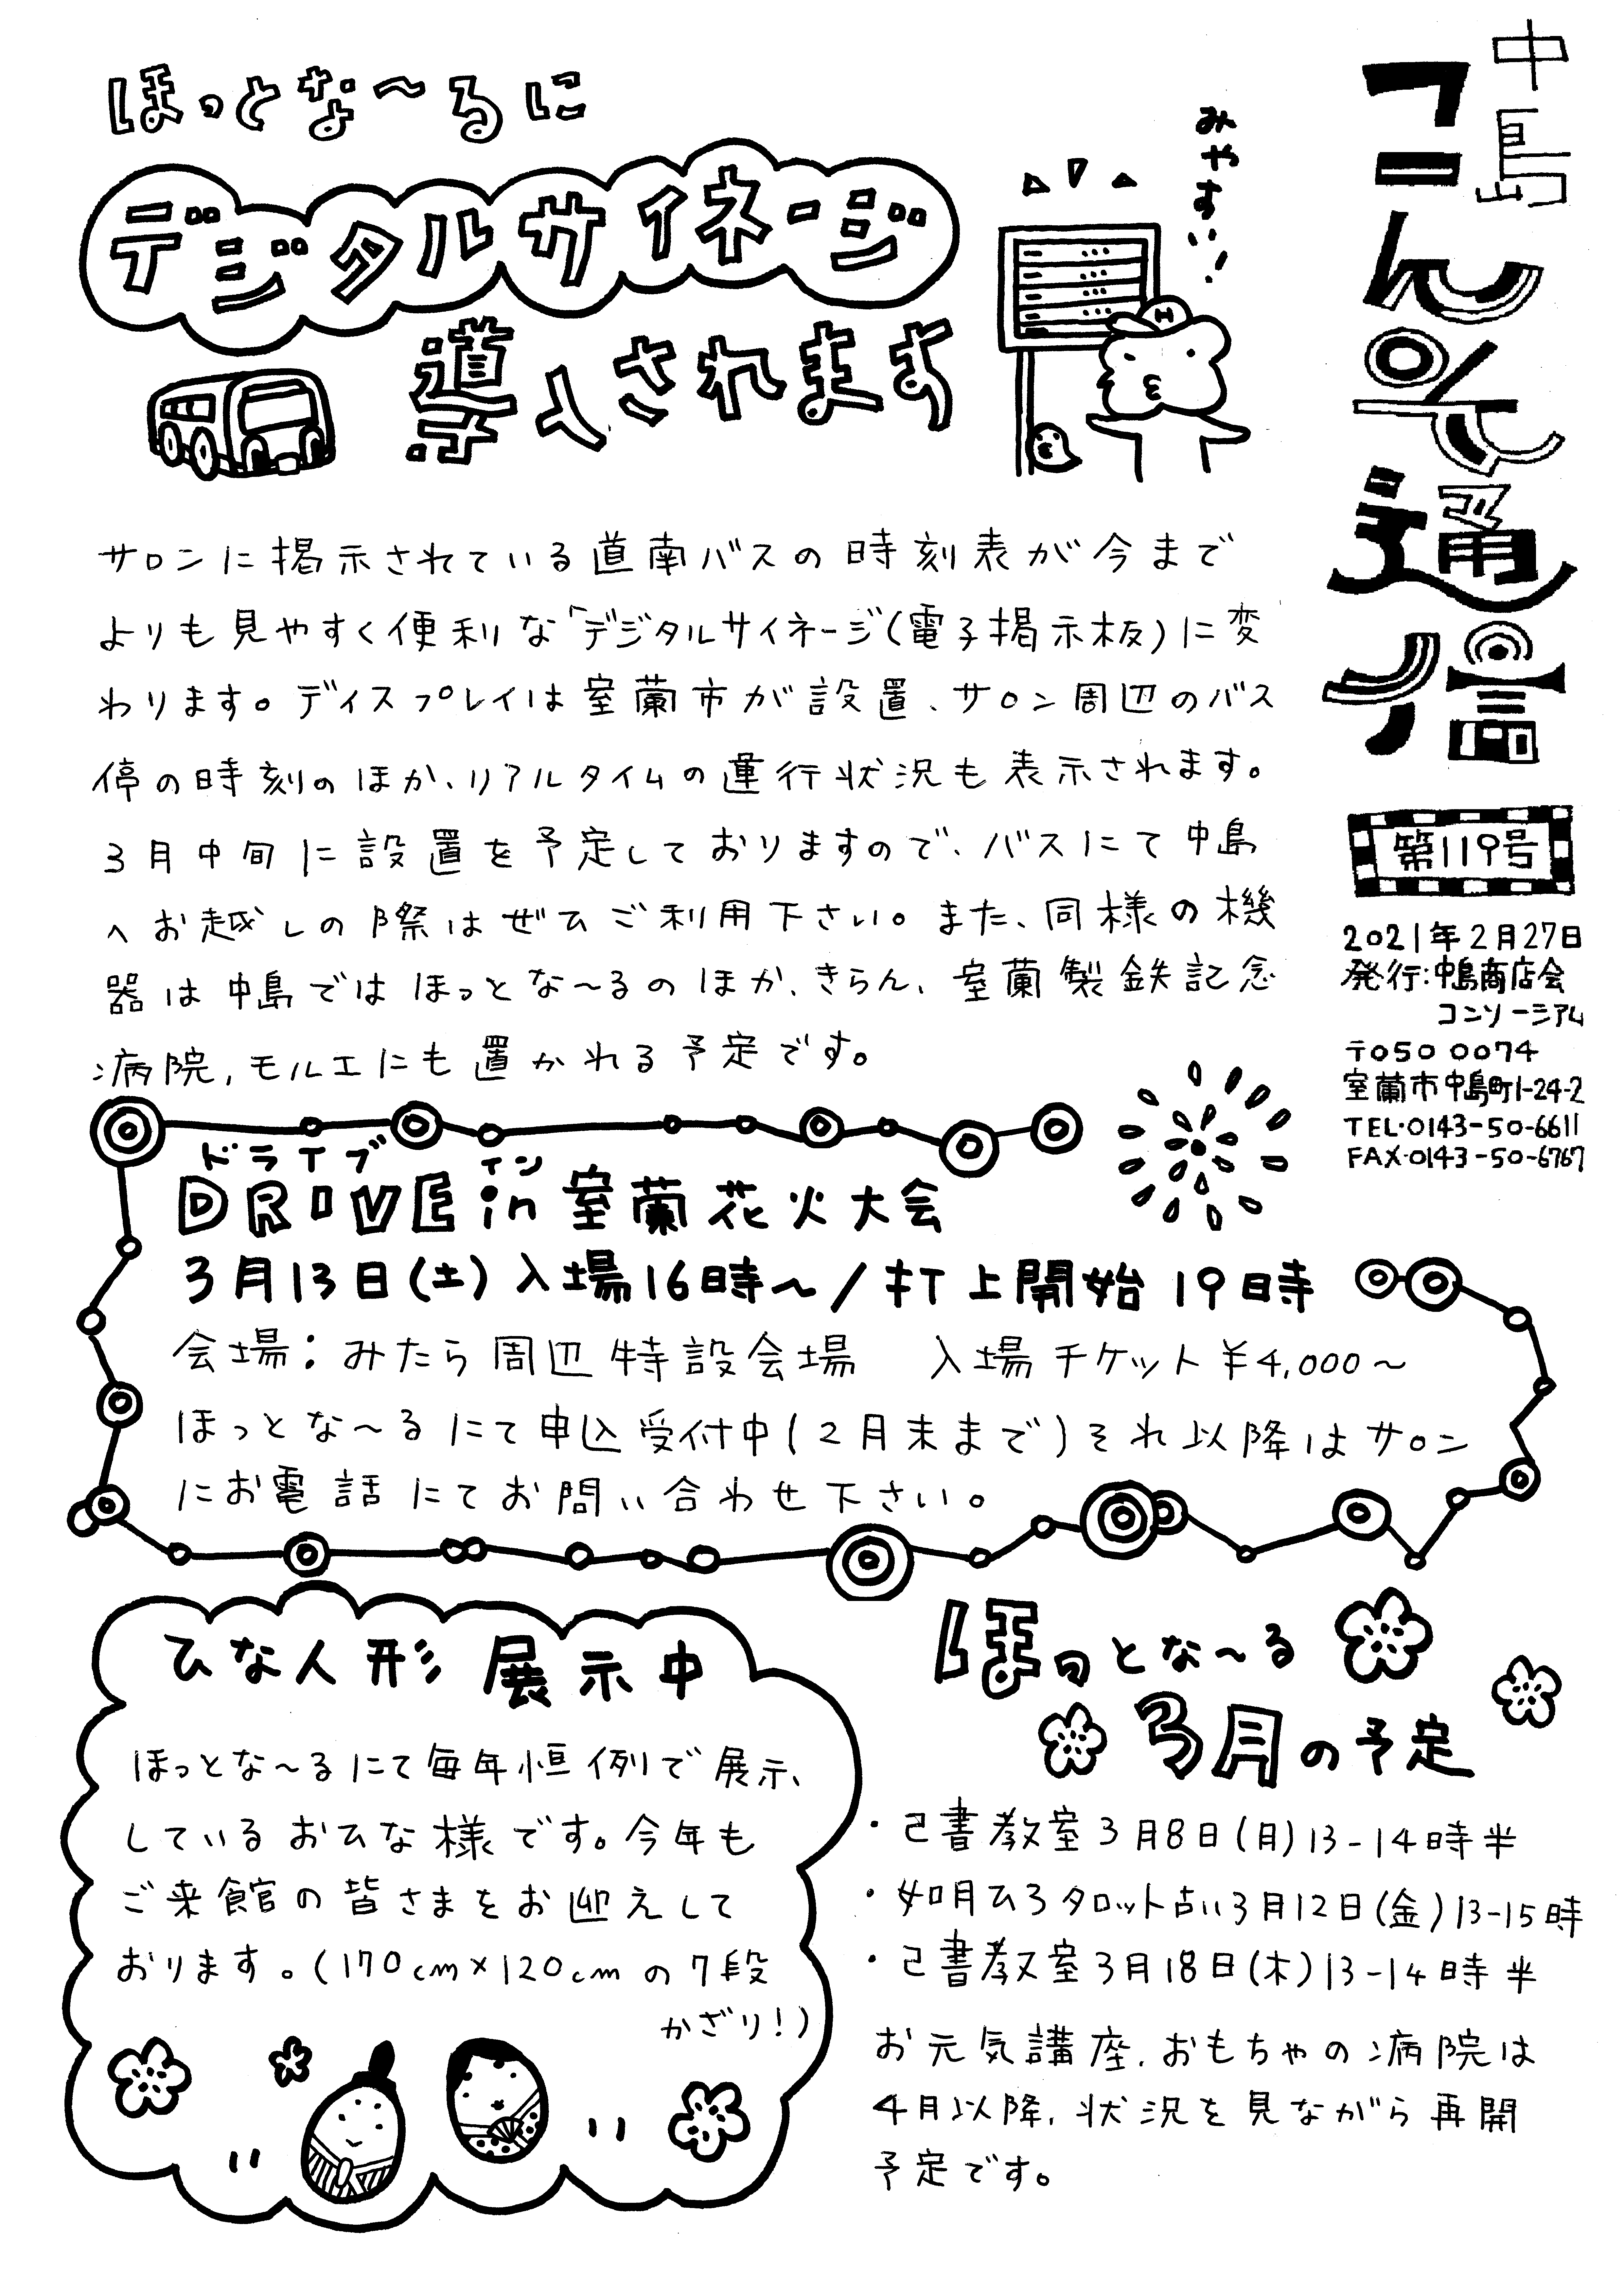 中島
コンそ通信
第119号
2021年2月27日
発行:中島商店会
コンソーシアム
〒050 0074
室蘭市中島町1-24-2
TEL・0143-50-6611
FAX・0143-50-6767
ほっとな〜るに
デジタルサイネージ
導入されます
みやすい!
H
サロンに掲示されている道南バスの時刻表が今まで
よりも見やすく便利な「デジタルサイネージ(電子掲示板)に変
わります。ディスプレイは室蘭市が設置、サロン周辺のバス
停の時刻のほか、リアルタイムの運行状況も表示されます。
3月中旬に設置を予定しておりますので、バスにて中島
へお越しの際はぜひご利用下さい。また、同様の機
器は中島ではほっとな〜るのほか、きらん、室蘭製鉄記念
病院、モルエにも置かれる予定です。
ドライブ イン
DRIVE in 室蘭花火大会
3月13日(土)入場16時〜/打上開始19時
会場:みたら周辺特設会場 入場チケット¥4,000〜
ほっとな〜るにて申込受付中(2月末まで)それ以降はサロン
にお電話にてお問い合わせ下さい。
ひな人形 展示中
ほっとな〜るにて毎年恒例で展示、
しているおひな様です。今年も
ご来館の皆さまをお迎えして
おります。(170cm×120cmの7段
かざり!)
ほっとな〜る
3月の予定
・己書教室3月8日(月)13-14時半
・如月ひろタロット占い3月12日(金)13-15時
・己書教室3月18日(木)13-14時半
お元気講座、おもちゃの病院は
4月以降、状況を見ながら再開
予定です。